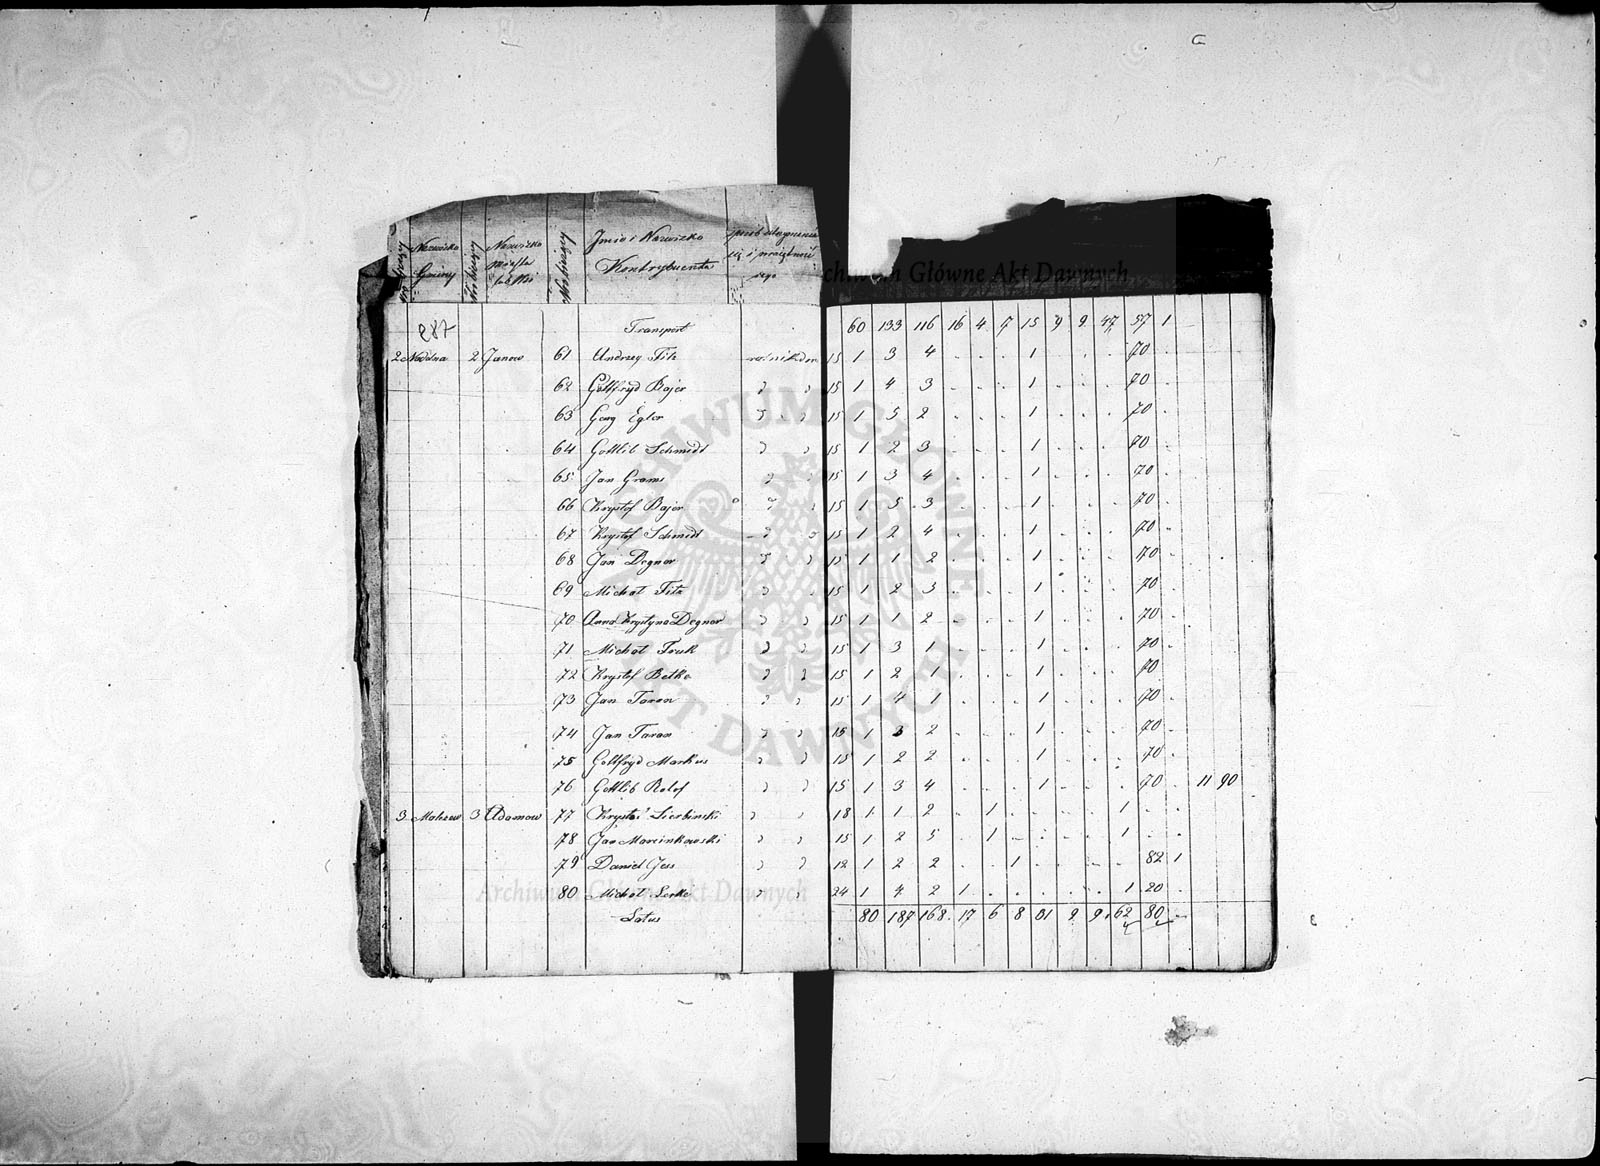 Nazwisko Gminy Nazwisko Imie i Nazwisko Kontrybuenta
287 Transport 60 133 116 16 4 7 15 9 9 47 57 1
2 Nadolna 2 Janow 61 Andrzey Titz rolnik 15 1 3 4 . . . 1 . . . 70 .
62 Gottfryd Bajer 15 1 4 3 . . . 1 . . . 70 .
63 Georg Egler 15 1 5 2 . . . 1 . . . 70 .
64 Gottlib Schmidt 15 1 2 3 . . . 1 . . . 70 .
65 Jan Grams 15 1 3 4 . . . 1 . . . 70 .
66 Krystof Bajer 15 1 5 3 . . . 1 . . . 70 .
67 Krystof Schmidt 15 1 2 4 . . . 1 . . . 70 .
68 Jan Degner 15 1 1 2 . . . 1 . . . 70 .
69 Michał Titz 15 1 2 3 . . . 1 . . . 70 .
70 Anna Krystyna Degner 15 1 1 2 . . . 1 . . . 70 .
71 Michał Truk 15 1 3 1 . . . 1 . . . 70 .
72 Krystof Betke 15 1 2 1 . . . 1 . . . 70 .
73 Jan Taron 15 1 4 1 . . . 1 . . . 70 .
74 Jan Taron 15 1 3 2 . . . 1 . . . 70 .
75 Gottfryd Markus 15 1 2 2 . . . 1 . . . 70 .
76 Gottlib Rolof 15 1 3 4 . . . 1 . . . 70 . 11 90
3 Małczew 3 Adamow 77 18 1 1 2 . 1 . . . . . 1 . .
78 Jan Marcinkowski 15 1 2 5 . 1 . . . . . 1 . .
79 Daniel Jess 12 1 2 2 . . 1 . . . . 82 1
80 Michał Lerke 24 1 4 2 1 . . . . . . 1 20 .
Latus 80 187 168 17 6 8 01 9 9 62 80
Archiwum Główne Akt Dawnych
ARCHIWUM GŁÓWNE AKT DAWNYCH
Archiwum Główne Akt Dawnych